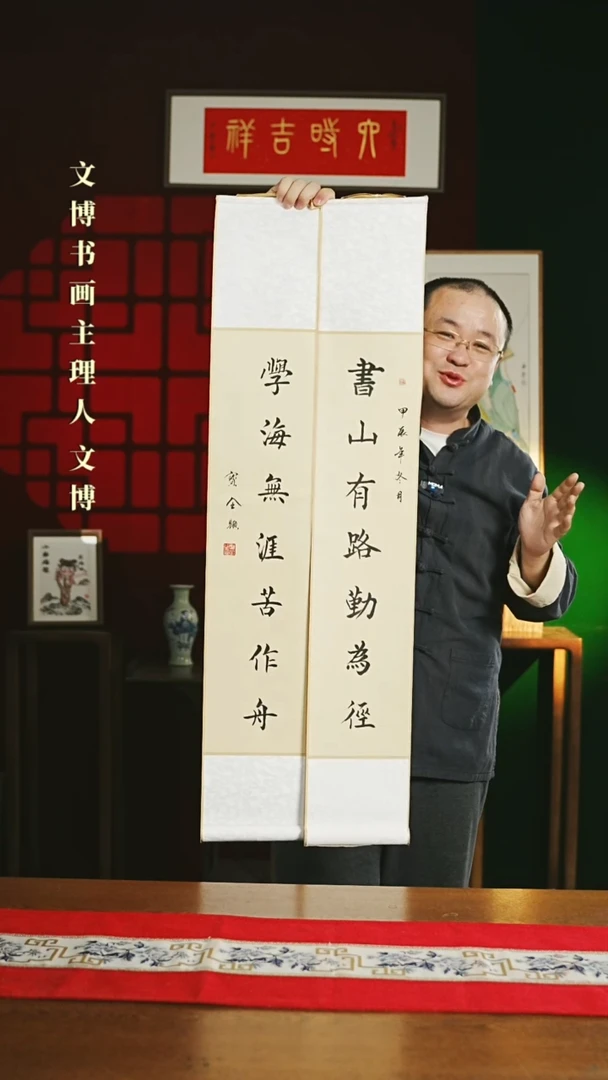 六時吉祥
文博书画主理人文博
甲辰年冬月
書山有路勤為徑
學海無涯苦作舟